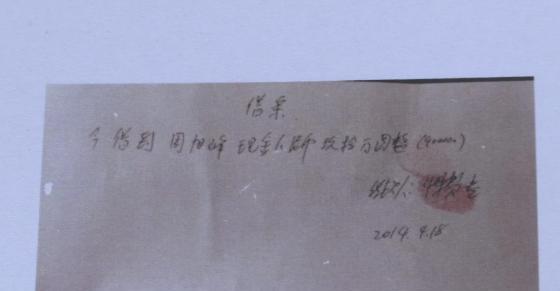 借条
今借到周旭峰现金人民币玖拾万圆整
借款人:
2014.9.18